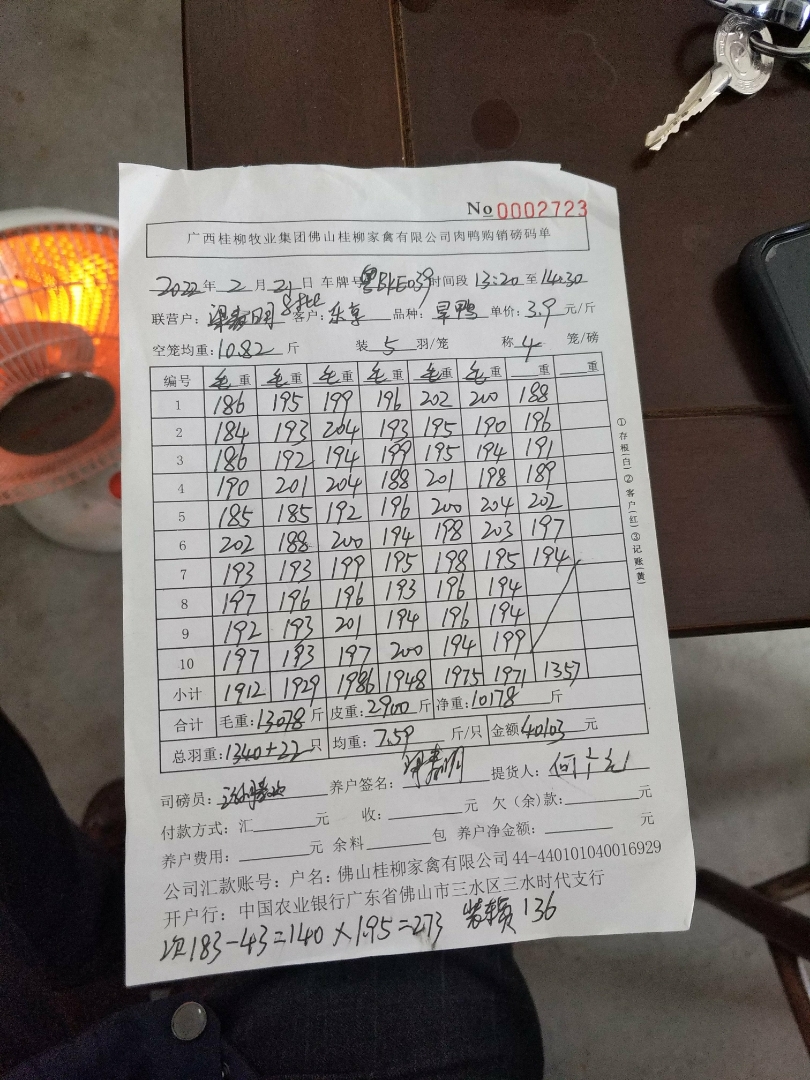 No 0002723
广西桂柳牧业集团佛山桂柳家禽有限公司肉鸭购销磅码单
2022年 2 月 21 日 车牌号 粤BKE039 时间段 13:20 至 14:30
联营户: 客户: 乐享 品种: 旱鸭 单价: 3.9 元/斤
空笼均重: 10.82 斤 装 5 羽/笼 称 4 笼/磅
编号 毛重 毛重 毛重 毛重 毛重 毛重 重 重
1 186 195 199 196 202 200 188
2 184 193 204 193 195 190 196
3 186 192 194 199 195 194 191
4 190 201 204 188 201 198 189
5 185 185 192 196 200 204 202
6 202 188 200 194 198 203 197
7 193 193 199 195 198 195 194
8 197 196 196 193 196 194
9 192 193 201 194 196 194
10 197 193 197 200 194 199
小计 1912 1929 1986 1948 1975 1971 1357
合计 毛重: 13078 斤 皮重: 2900 斤 净重: 10178 斤
总羽重: 1340+22 只 均重: 7.59 斤/只 金额 40103 元
司磅员: 养户签名: 提货人:
付款方式: 汇 元 收: 元 欠(余)款: 元
养户费用: 元 余料 包 养户净金额: 元
公司汇款账号: 户名: 佛山桂柳家禽有限公司 44-440101040016929
开户行: 中国农业银行广东省佛山市三水区三水时代支行
次183-43=140×1.95=273 136
①存根(白)②客户(红)③记账(黄)